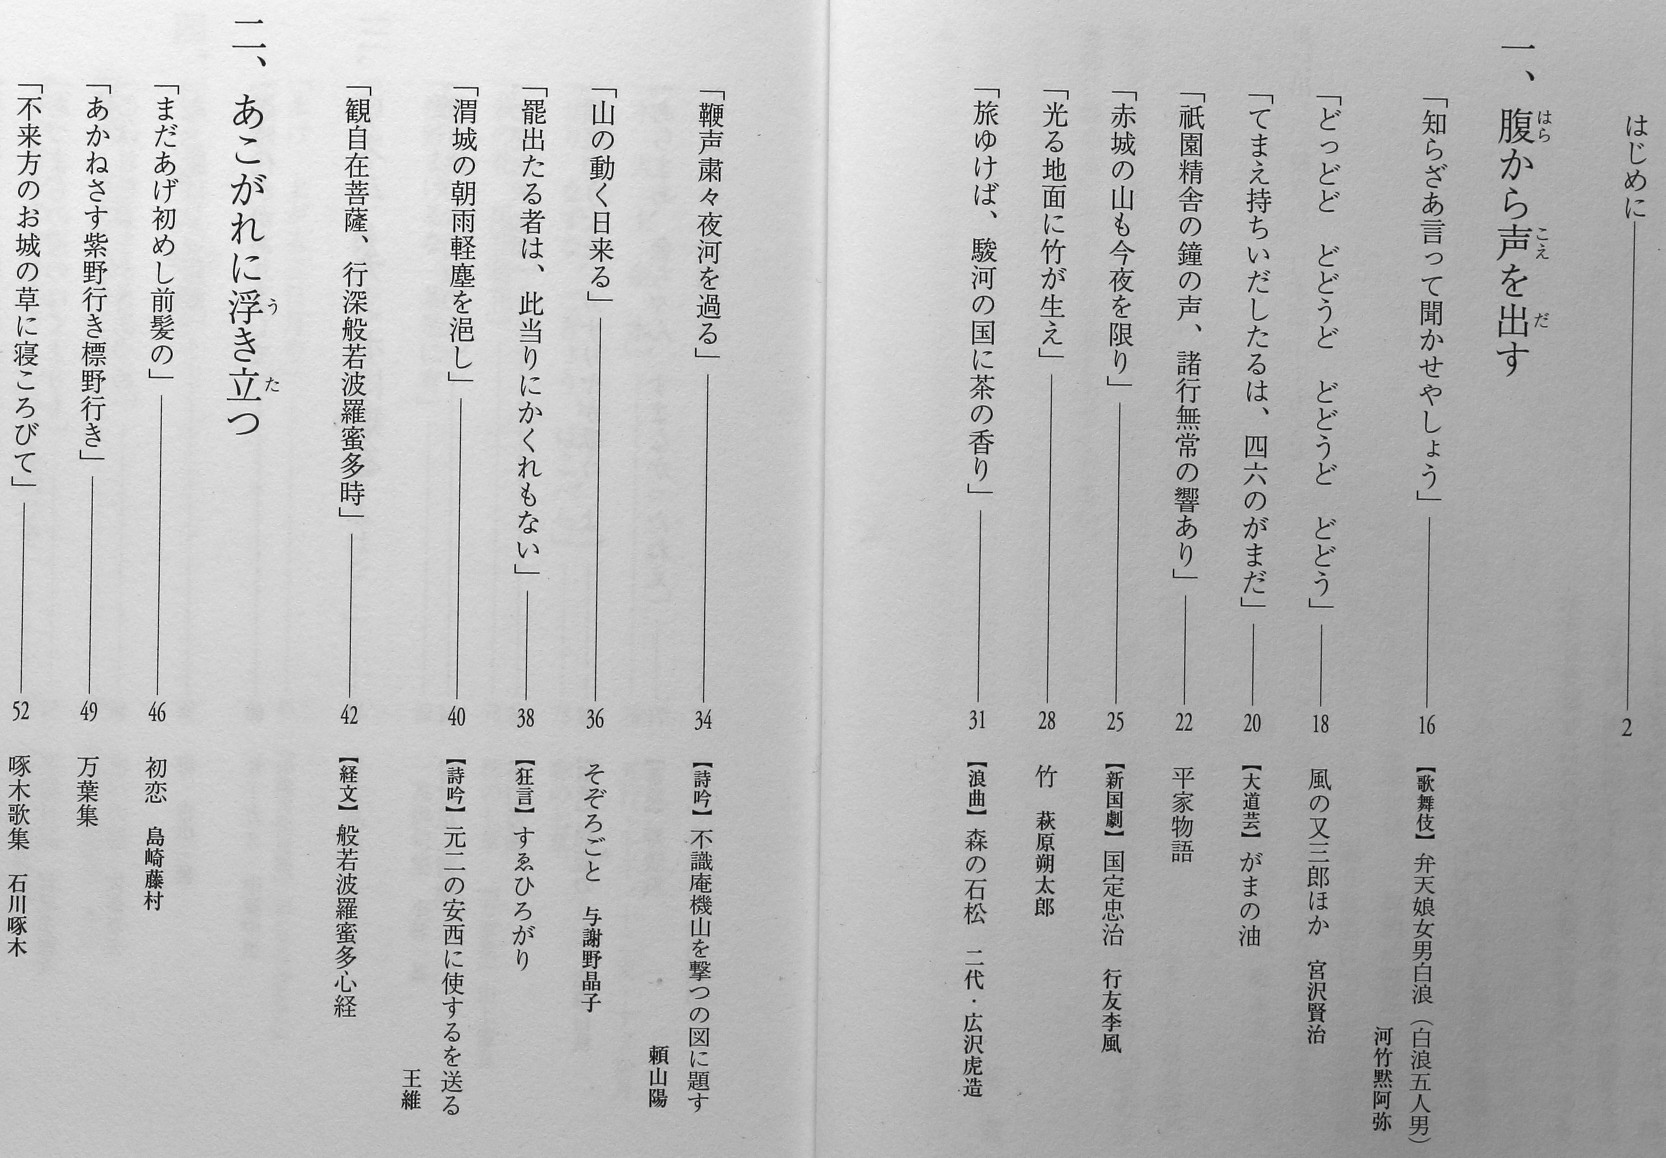 はじめに 2
一、腹から声を出す
「知らざあ言って聞かせやしょう」 16 【歌舞伎】弁天娘女男白浪（白浪五人男）
河竹黙阿弥
「どっどど　どどうど　どどうど　どどう」 18 風の又三郎ほか　宮沢賢治
「てまえ持ちいだしたるは、四六のがまだ」 20 【大道芸】がまの油
「祇園精舎の鐘の声、諸行無常の響あり」 22 平家物語
「赤城の山も今夜を限り」 25 【新国劇】国定忠治　行友李風
「光る地面に竹が生え」 28 竹　萩原朔太郎
「旅ゆけば、駿河の国に茶の香り」 31 【浪曲】森の石松　二代・広沢虎造
「鞭声粛々夜河を過る」 34 【詩吟】不識庵機山を撃つの図に題す
頼山陽
「山の動く日来る」 36 そぞろごと　与謝野晶子
「罷出たる者は、此当りにかくれもない」 38 【狂言】すゑひろがり
「渭城の朝雨軽塵を浥し」 40 【詩吟】元二の安西に使するを送る
王維
「観自在菩薩、行深般若波羅蜜多時」 42 【経文】般若波羅蜜多心経
二、あこがれに浮き立つ
「まだあげ初めし前髪の」 46 初恋　島崎藤村
「あかねさす紫野行き標野行き」 49 万葉集
「不来方のお城の草に寝ころびて」 52 啄木歌集　石川啄木